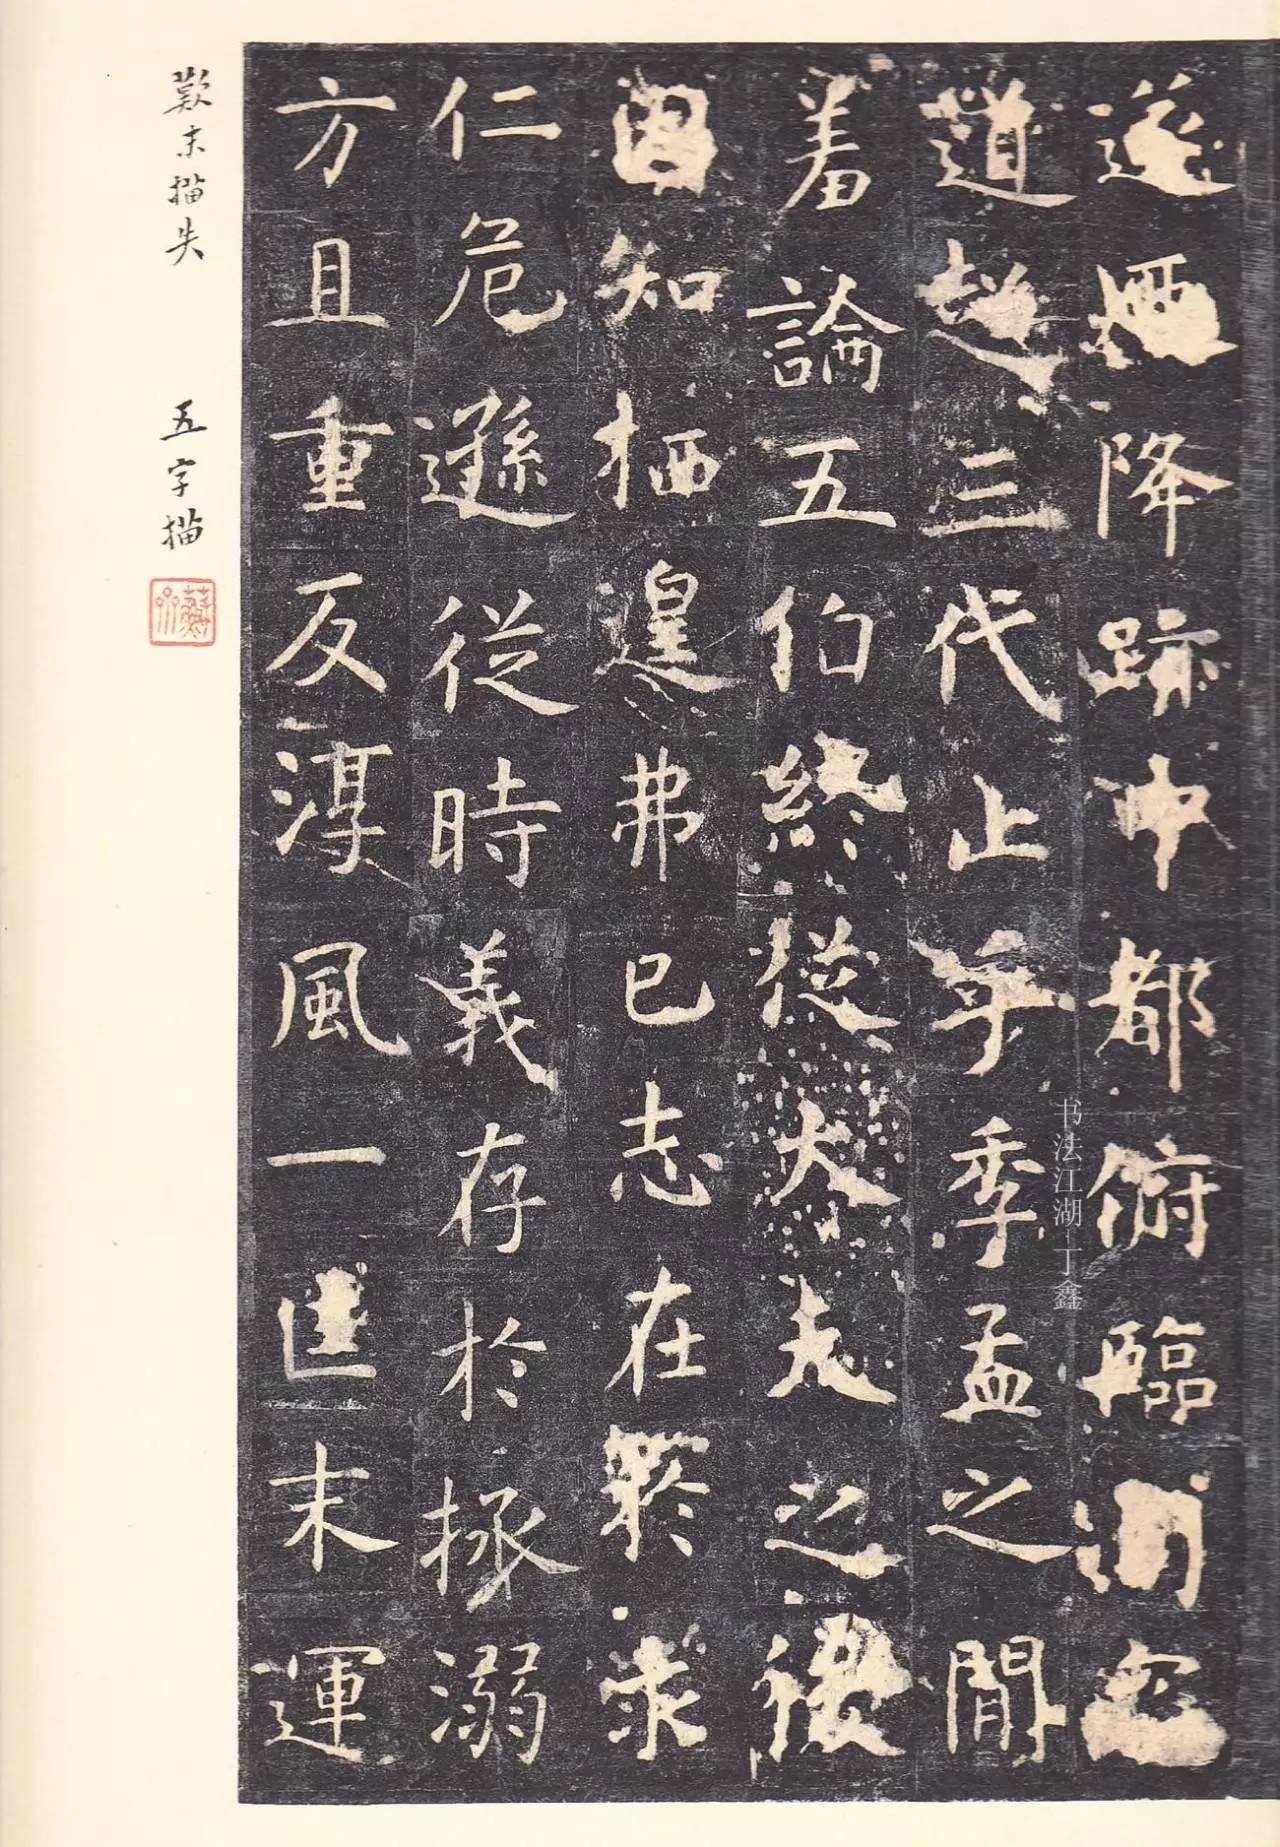 遂迺降跡中都俯臨司寇
道超三代止乎季孟之間
羞論五伯終從大夫之後
固知栖遑弗已志在於求
仁危遜從時義存於拯溺
方且重反淳風一匡末運
末描失
五字描
书法江湖丁鑫